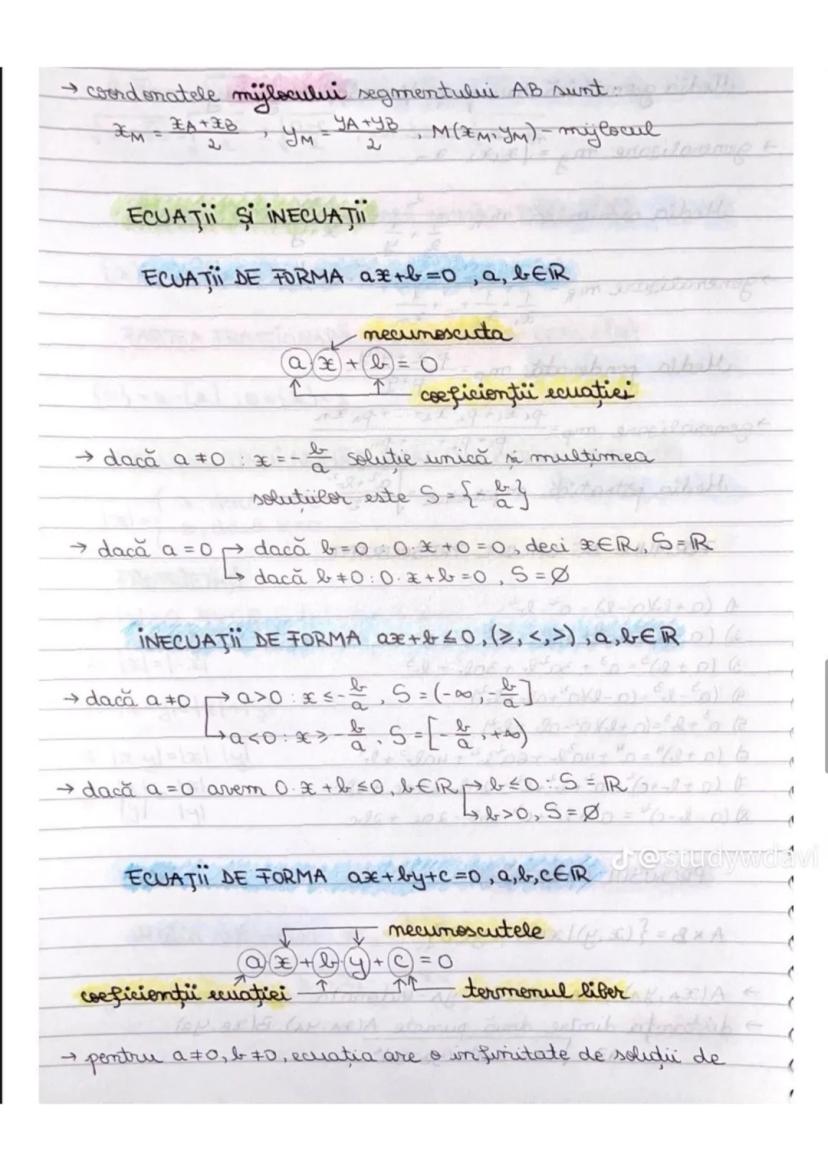 → coordonatele mijlocului segmentului AB sunt:
xM = xA+xB/2 , yM = yA+yB/2 , M(xM, yM) - mijlocul
ECUAȚII ȘI INECUAȚII
ECUAȚII DE FORMA ax+b=0 , a, b∈ℝ
necunoscuta
a x + b = 0
coeficienții ecuației
→ dacă a ≠ 0 : x = - b/a soluție unică și mulțimea
soluțiilor este S = {- b/a}
→ dacă a = 0 → dacă b = 0 : 0·x + 0 = 0, deci x∈ℝ, S = ℝ
↳ dacă b ≠ 0 : 0·x + b = 0 , S = ∅
INECUAȚII DE FORMA ax+b ≤ 0, (≥, <, >) , a, b∈ℝ
→ dacă a ≠ 0 → a > 0 : x ≤ - b/a , S = (-∞, - b/a]
↳ a < 0 : x ≥ - b/a , S = [- b/a , +∞)
→ dacă a = 0 avem 0·x + b ≤ 0, b∈ℝ → b ≤ 0 : S = ℝ
↳ b > 0, S = ∅
@studywdavi
ECUAȚII DE FORMA ax+by+c=0 , a,b,c∈ℝ
necunoscutele
a x + b y + c = 0
coeficienții ecuației termenul liber
→ pentru a ≠ 0, b ≠ 0, ecuația are o infinitate de soluții de